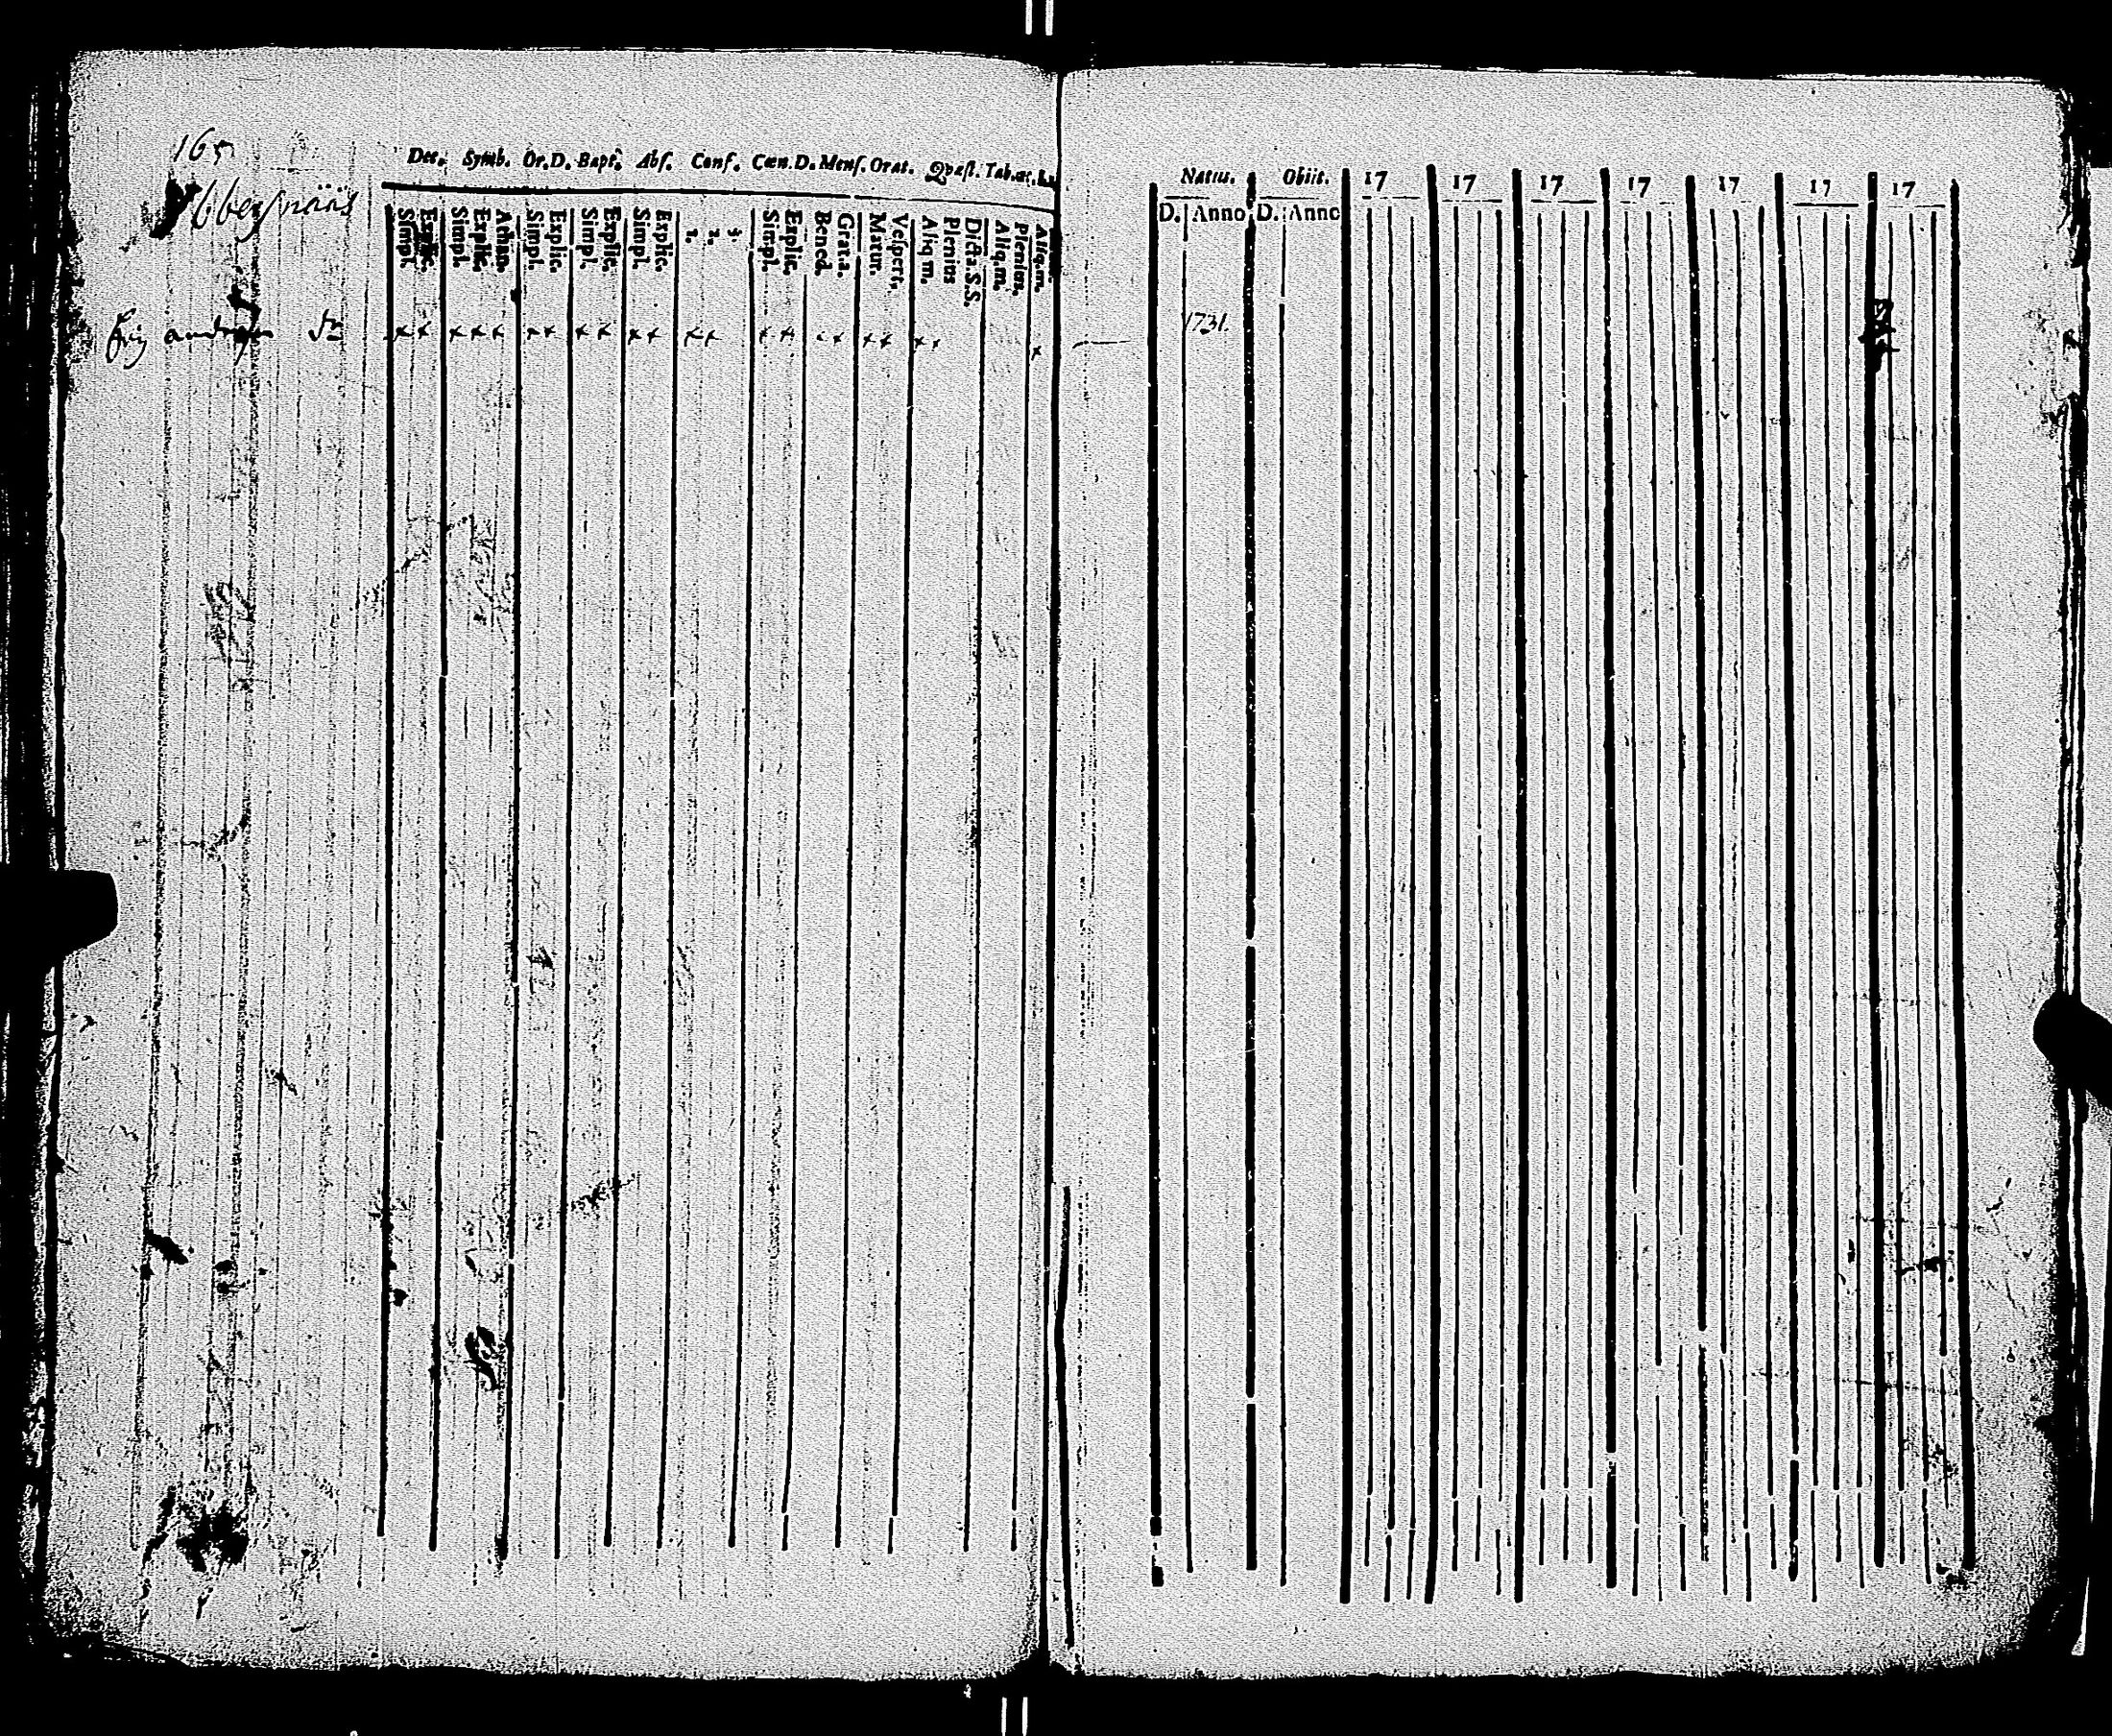 165
Dec. Symb. Or.D. Bapt. Abs. Conf. Cœn.D. Mens. Orat. Qvæst. Tab.œc.
Simpl. Explic. Simpl. Explic. Athan. Simpl. Explic. Simpl. Explic. Simpl. Explic. 1. 2. 3. Simpl. Explic. Bened. Grat.a. Matur. Vespert. Aliq m. Plenius Dicta S.S. Aliq.m. Plenius. Aliq.m.
Natus. Obiit. 17 17 17 17 17 17 17
D. Anno D. Anno
x x x x x x x x x x x x x x x x x x x x x x
1731.